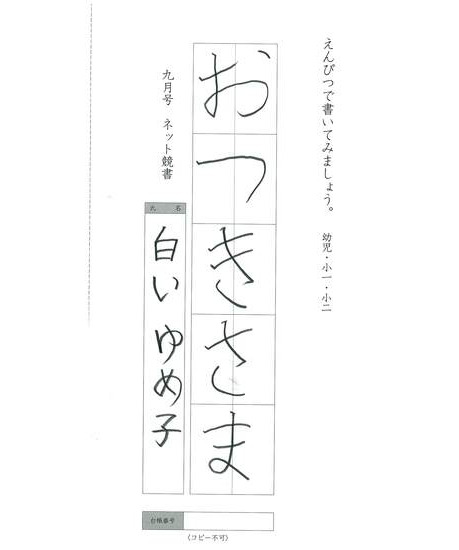 えんぴつで書いてみましょう。
幼児・小一・小二
おつきさま
九月号 ネット競書
氏名
白い ゆめ子
台帳番号
(コピー不可)